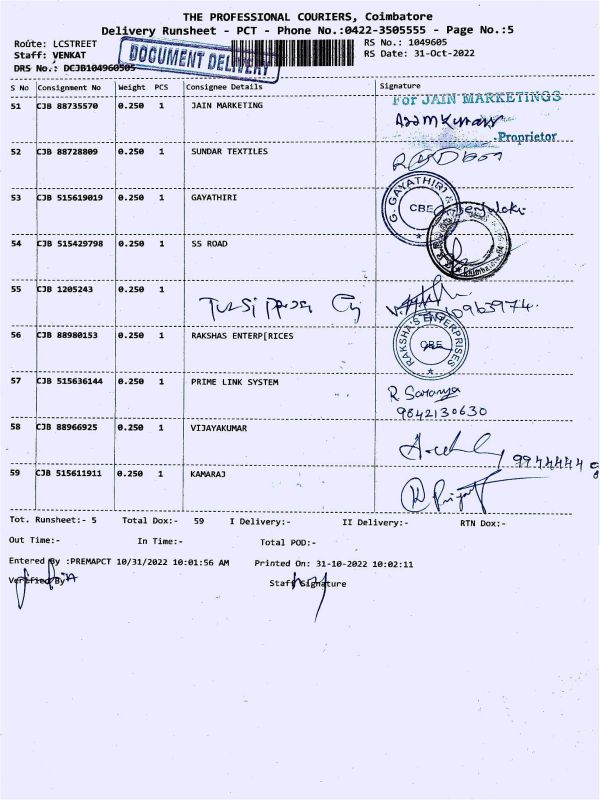 THE PROFESSIONAL COURIERS, Coimbatore
Delivery Runsheet - PCT - Phone No.:0422-3505555 - Page No.:5
Route: LCSTREET
RS No.: 1049605
Staff: VENKAT
DOCUMENT DELIVERY
RS Date: 31-Oct-2022
DRS No.: DCJB104960505
S No Consignment No Weight PCS Consignee Details Signature
51 CJB 88735570 0.250 1 JAIN MARKETING
For JAIN MARKETINGS
Proprietor
52 CJB 88728809 0.250 1 SUNDAR TEXTILES
53 CJB 515619019 0.250 1 GAYATHIRI
G. GAYATHIRI
CBE
54 CJB 515429798 0.250 1 SS ROAD
55 CJB 1205243 0.250 1
56 CJB 88980153 0.250 1 RAKSHAS ENTERP[RICES
RAKSHA'S ENTERPRISES
CBE
57 CJB 515636144 0.250 1 PRIME LINK SYSTEM
R Saranya
9842130630
58 CJB 88966925 0.250 1 VIJAYAKUMAR
59 CJB 515611911 0.250 1 KAMARAJ
Tot. Runsheet:- 5 Total Dox:- 59 I Delivery:- II Delivery:- RTN Dox:-
Out Time:- In Time:- Total POD:-
Entered By :PREMAPCT 10/31/2022 10:01:56 AM Printed On: 31-10-2022 10:02:11
Verified By Staff Signature